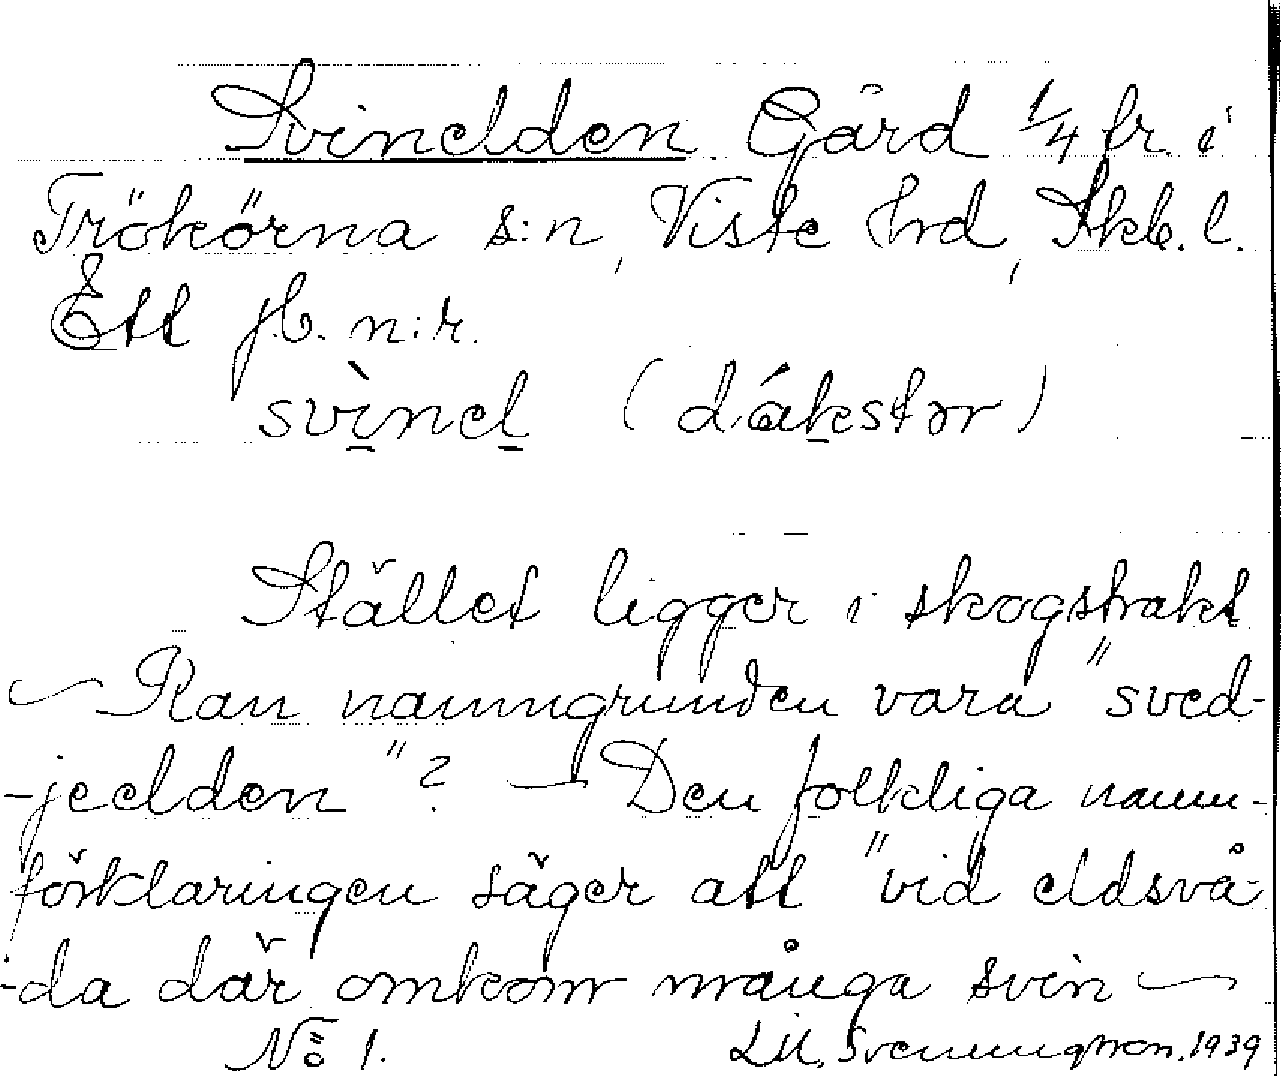 Svinelden Gård 1/4 fr. i
Trökörna s:n, Viste hrd, Skb. l.
Ett jb. n:r.
svìnel (dákstər)
Stället ligger i skogstrakt
– Kan namngrunden vara "sved-
-jeelden"? – Den folkliga namn-
förklaringen säger att "vid eldsvå-
-da där omkom många svin –
No 1. Lill. Svenungsson. 1939